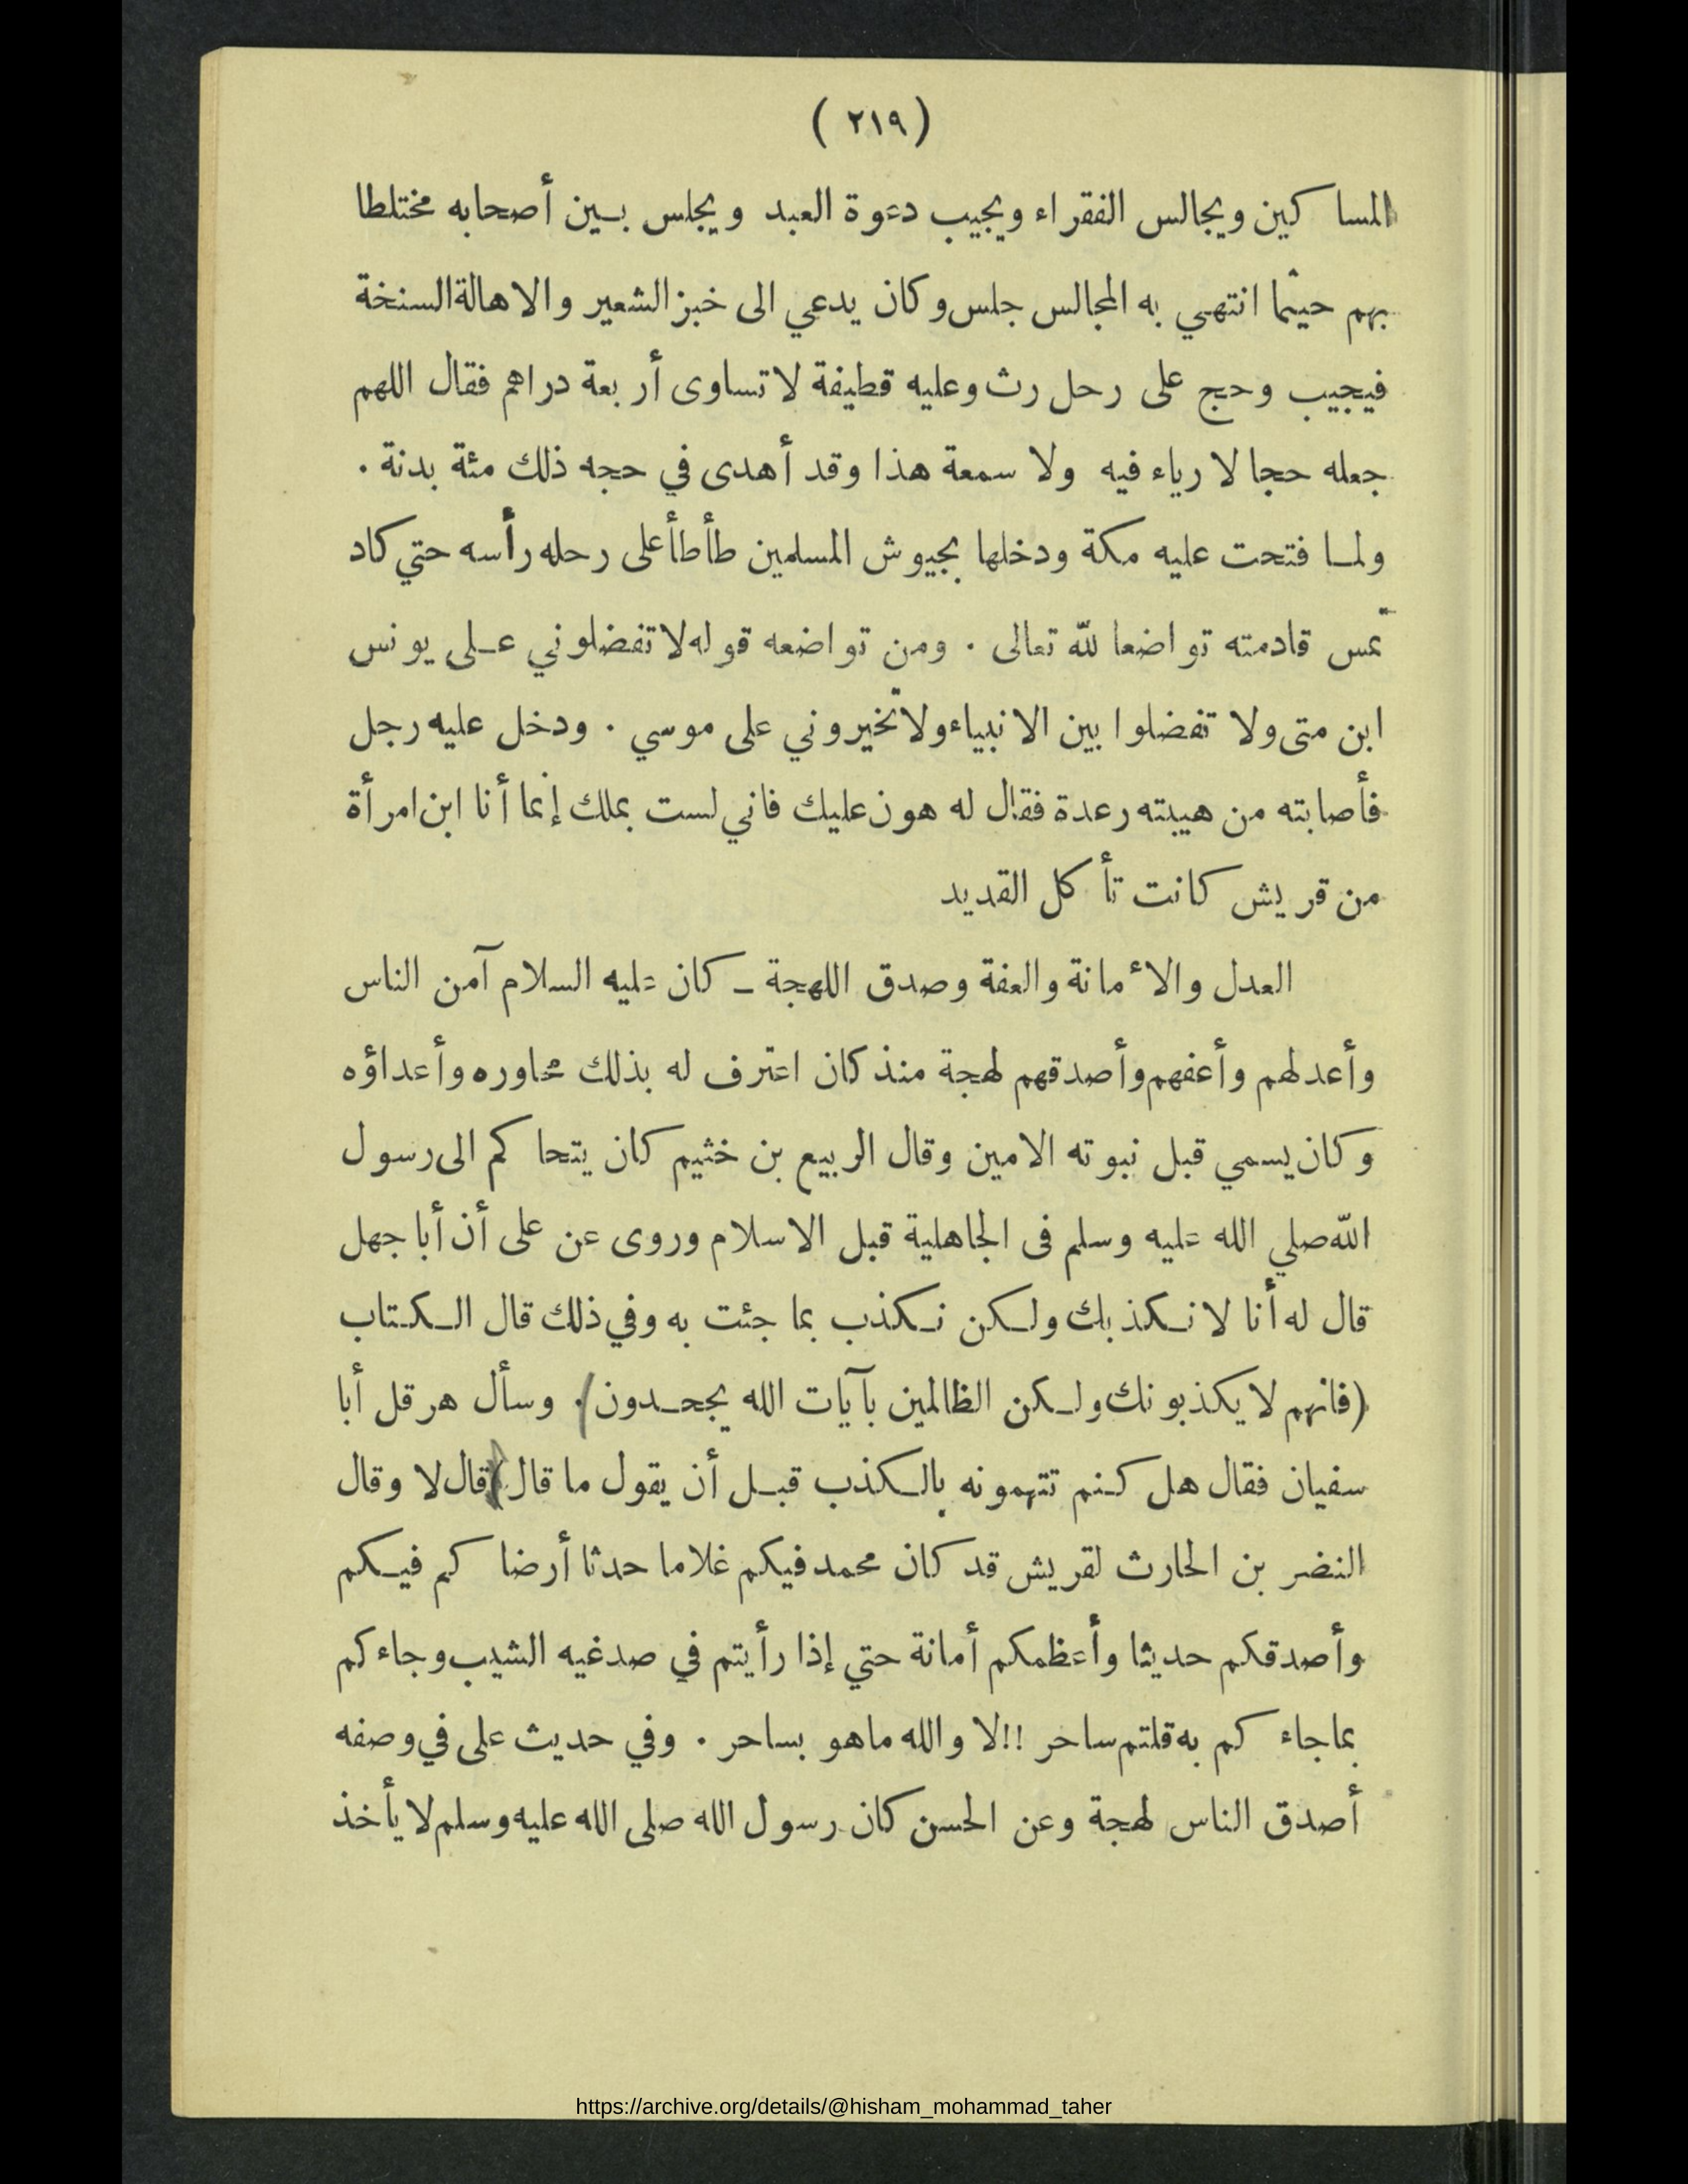 ( ٢١٩ )
المساكين ويجالس الفقراء ويجيب دعوة العبد ويجلس بين أصحابه مختلطا
بهم حيثما انتهي به المجالس جلس وكان يدعي الى خبز الشعير والاهالة السنخة
فيجيب وحج على رحل رث وعليه قطيفة لا تساوى أربعة دراهم فقال اللهم
جعله حجا لا رياء فيه ولا سمعة هذا وقد أهدى في حجه ذلك مئة بدنة .
ولما فتحت عليه مكة ودخلها بجيوش المسلمين طأطأ على رحله رأسه حتي كاد
تمس قادمته تواضعا لله تعالى . ومن تواضعه قوله لا تفضلوني على يونس
ابن متى ولا تفضلوا بين الانبياء ولا تخيروني على موسي . ودخل عليه رجل
فأصابته من هيبته رعدة فقال له هون عليك فاني لست بملك إنما أنا ابن امرأة
من قريش كانت تأكل القديد
العدل والأمانة والعفة وصدق اللهجة ــ كان عليه السلام آمن الناس
وأعدلهم وأعفهم وأصدقهم لهجة منذ كان اعترف له بذلك محاوره وأعداؤه
وكان يسمي قبل نبوته الامين وقال الربيع بن خثيم كان يتحاكم الى رسول
الله صلي الله عليه وسلم فى الجاهلية قبل الاسلام وروى عن على أن أبا جهل
قال له أنا لا نكذبك ولكن نكذب بما جئت به وفي ذلك قال الكتاب
(فانهم لا يكذبونك ولكن الظالمين بآيات الله يجحدون) . وسأل هرقل أبا
سفيان فقال هل كنم تتهمونه بالكذب قبل أن يقول ما قال) قال لا وقال
النضر بن الحارث لقريش قد كان محمد فيكم غلاما حدثا أرضاكم فيكم
وأصدقكم حديثا وأعظمكم أمانة حتي إذا رأيتم في صدغيه الشيب وجاءكم
بما جاءكم به قلتم ساحر !! لا والله ماهو بساحر . وفي حديث على في وصفه
أصدق الناس لهجة وعن الحسن كان رسول الله صلى الله عليه وسلم لا يأخذ
https://archive.org/details/@hisham_mohammad_taher